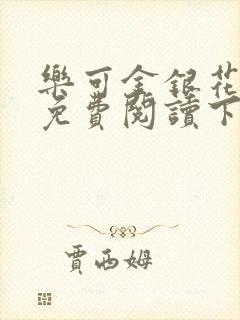 樂可金銀花
免費閱讀下
賈西姆